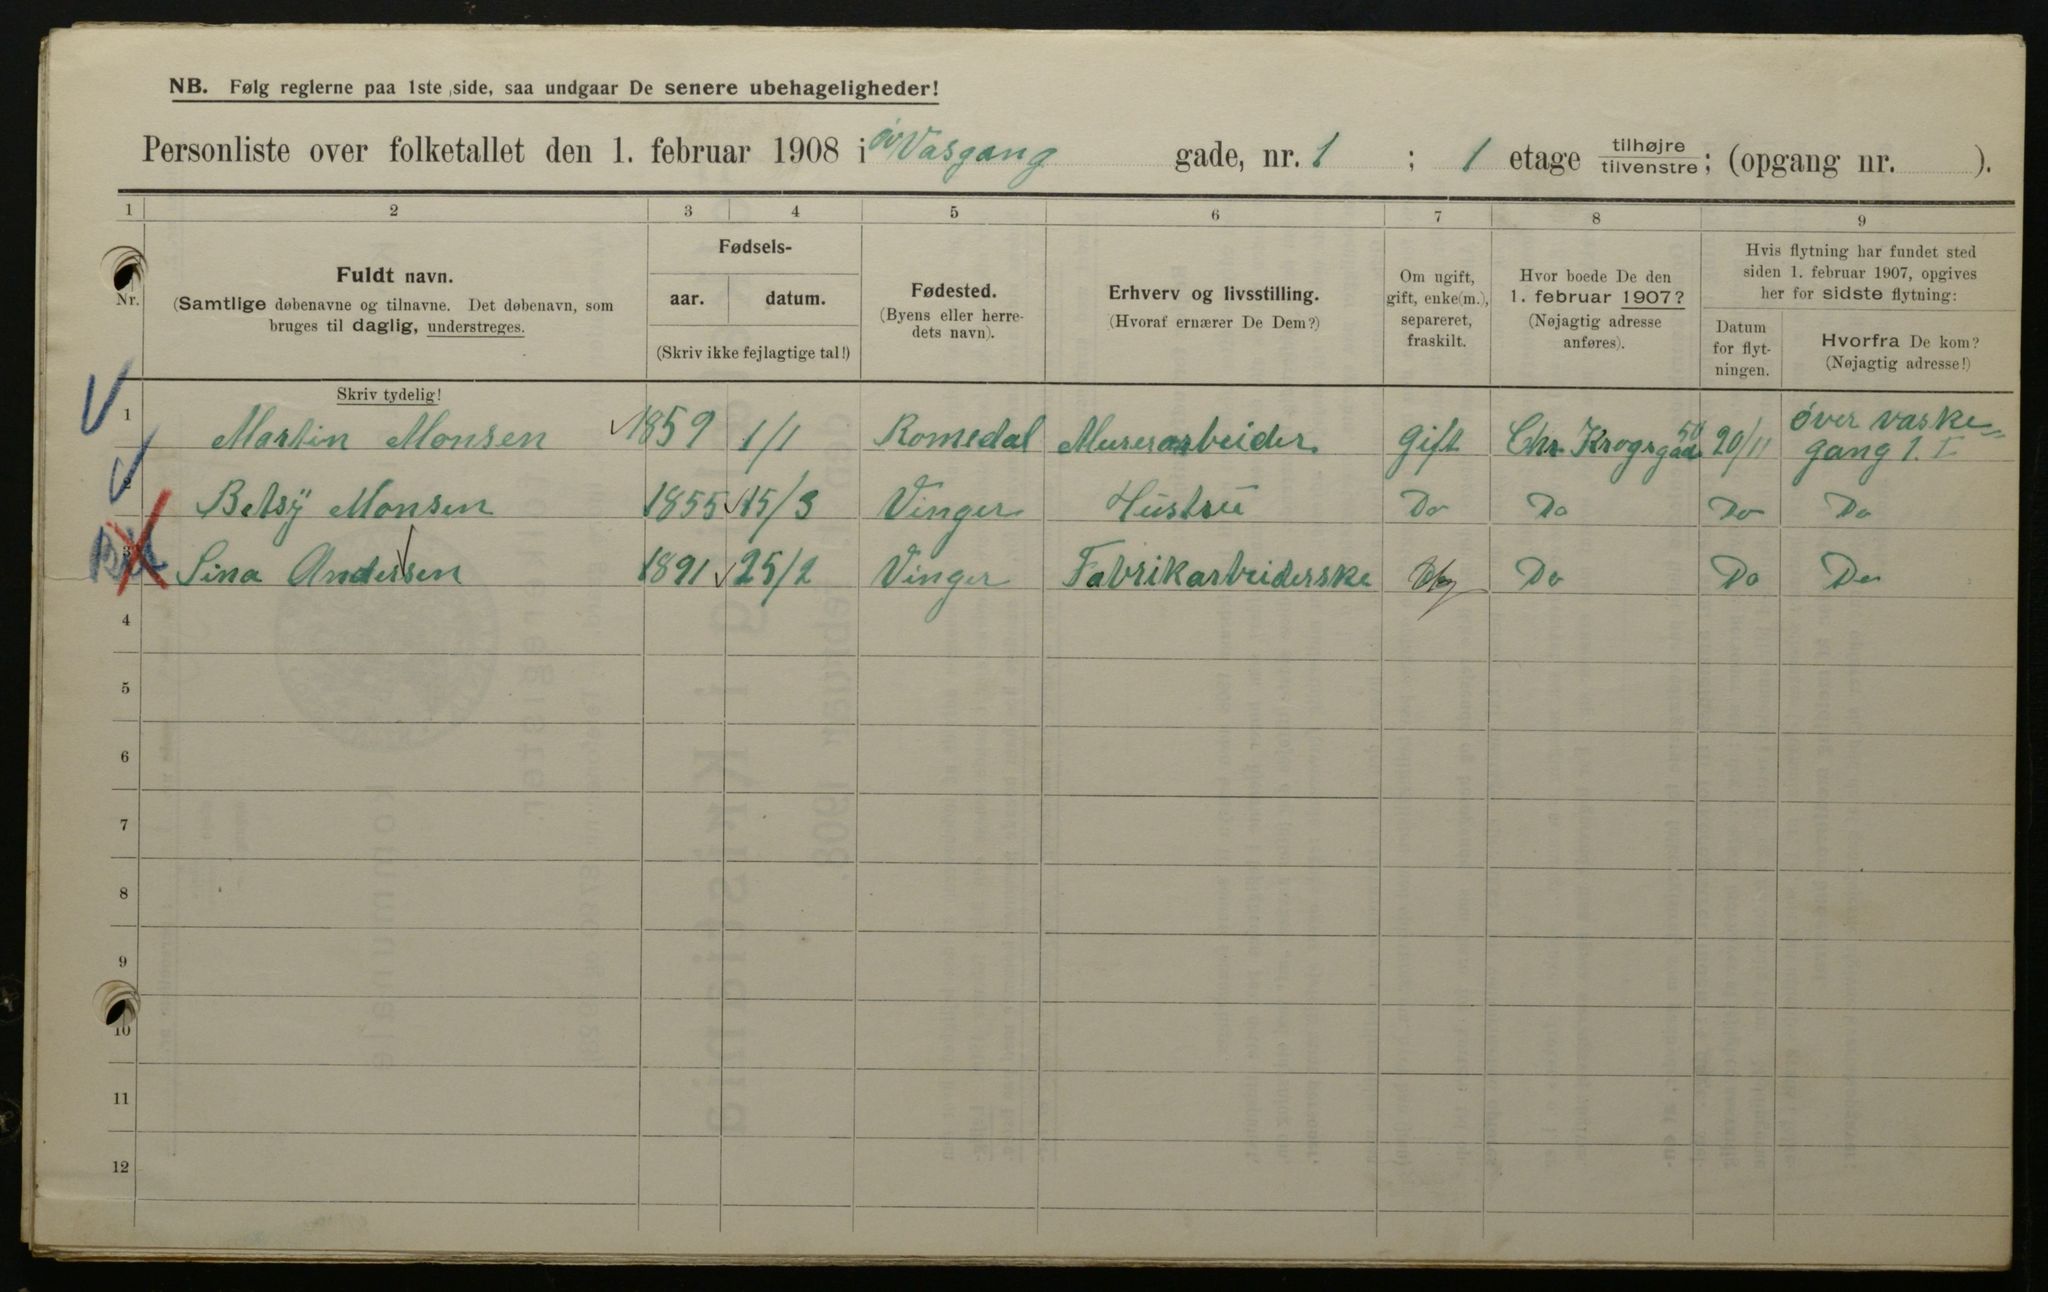 NB. Følg reglerne paa 1ste side, saa undgaar De senere ubehageligheder!
Personliste over folketallet den 1. februar 1908 i øv Vasgang gade, nr. 1 ; 1 etage tilhøjre tilvenstre; (opgang nr. ).
1 2 3 4 5 6 7 8 9
Nr.
Fuldt navn.
(Samtlige døbenavne og tilnavne. Det døbenavn, som
bruges til daglig, understreges.
Skriv tydelig!
Fødsels-
aar. datum.
(Skriv ikke fejlagtige tal!)
Fødested.
(Byens eller herre-
dets navn).
Erhverv og livsstilling.
(Hvoraf ernærer De Dem?)
Om ugift,
gift, enke(m.),
separeret,
fraskilt.
Hvor boede De den
1. februar 1907?
(Nøjagtig adresse
anføres).
Hvis flytning har fundet sted
siden 1. februar 1907, opgives
her for sidste flytning:
Datum
for flyt-
ningen.
Hvorfra De kom?
(Nøjagtig adresse!)
1 Martin Monsen 1859 1/1 Romedal Murerarbeider Gift Chr. Krogsgade 50 20/11 över vaske=
gang 1. I
2 Betsÿ Monsen 1855 15/3 Vinger Hustru Do Do Do Do
3 Sina Andersen 1891 25/2 Vinger Fabrikarbeiderske Ug Do Do Do
4
5
6
7
8
9
10
11
12